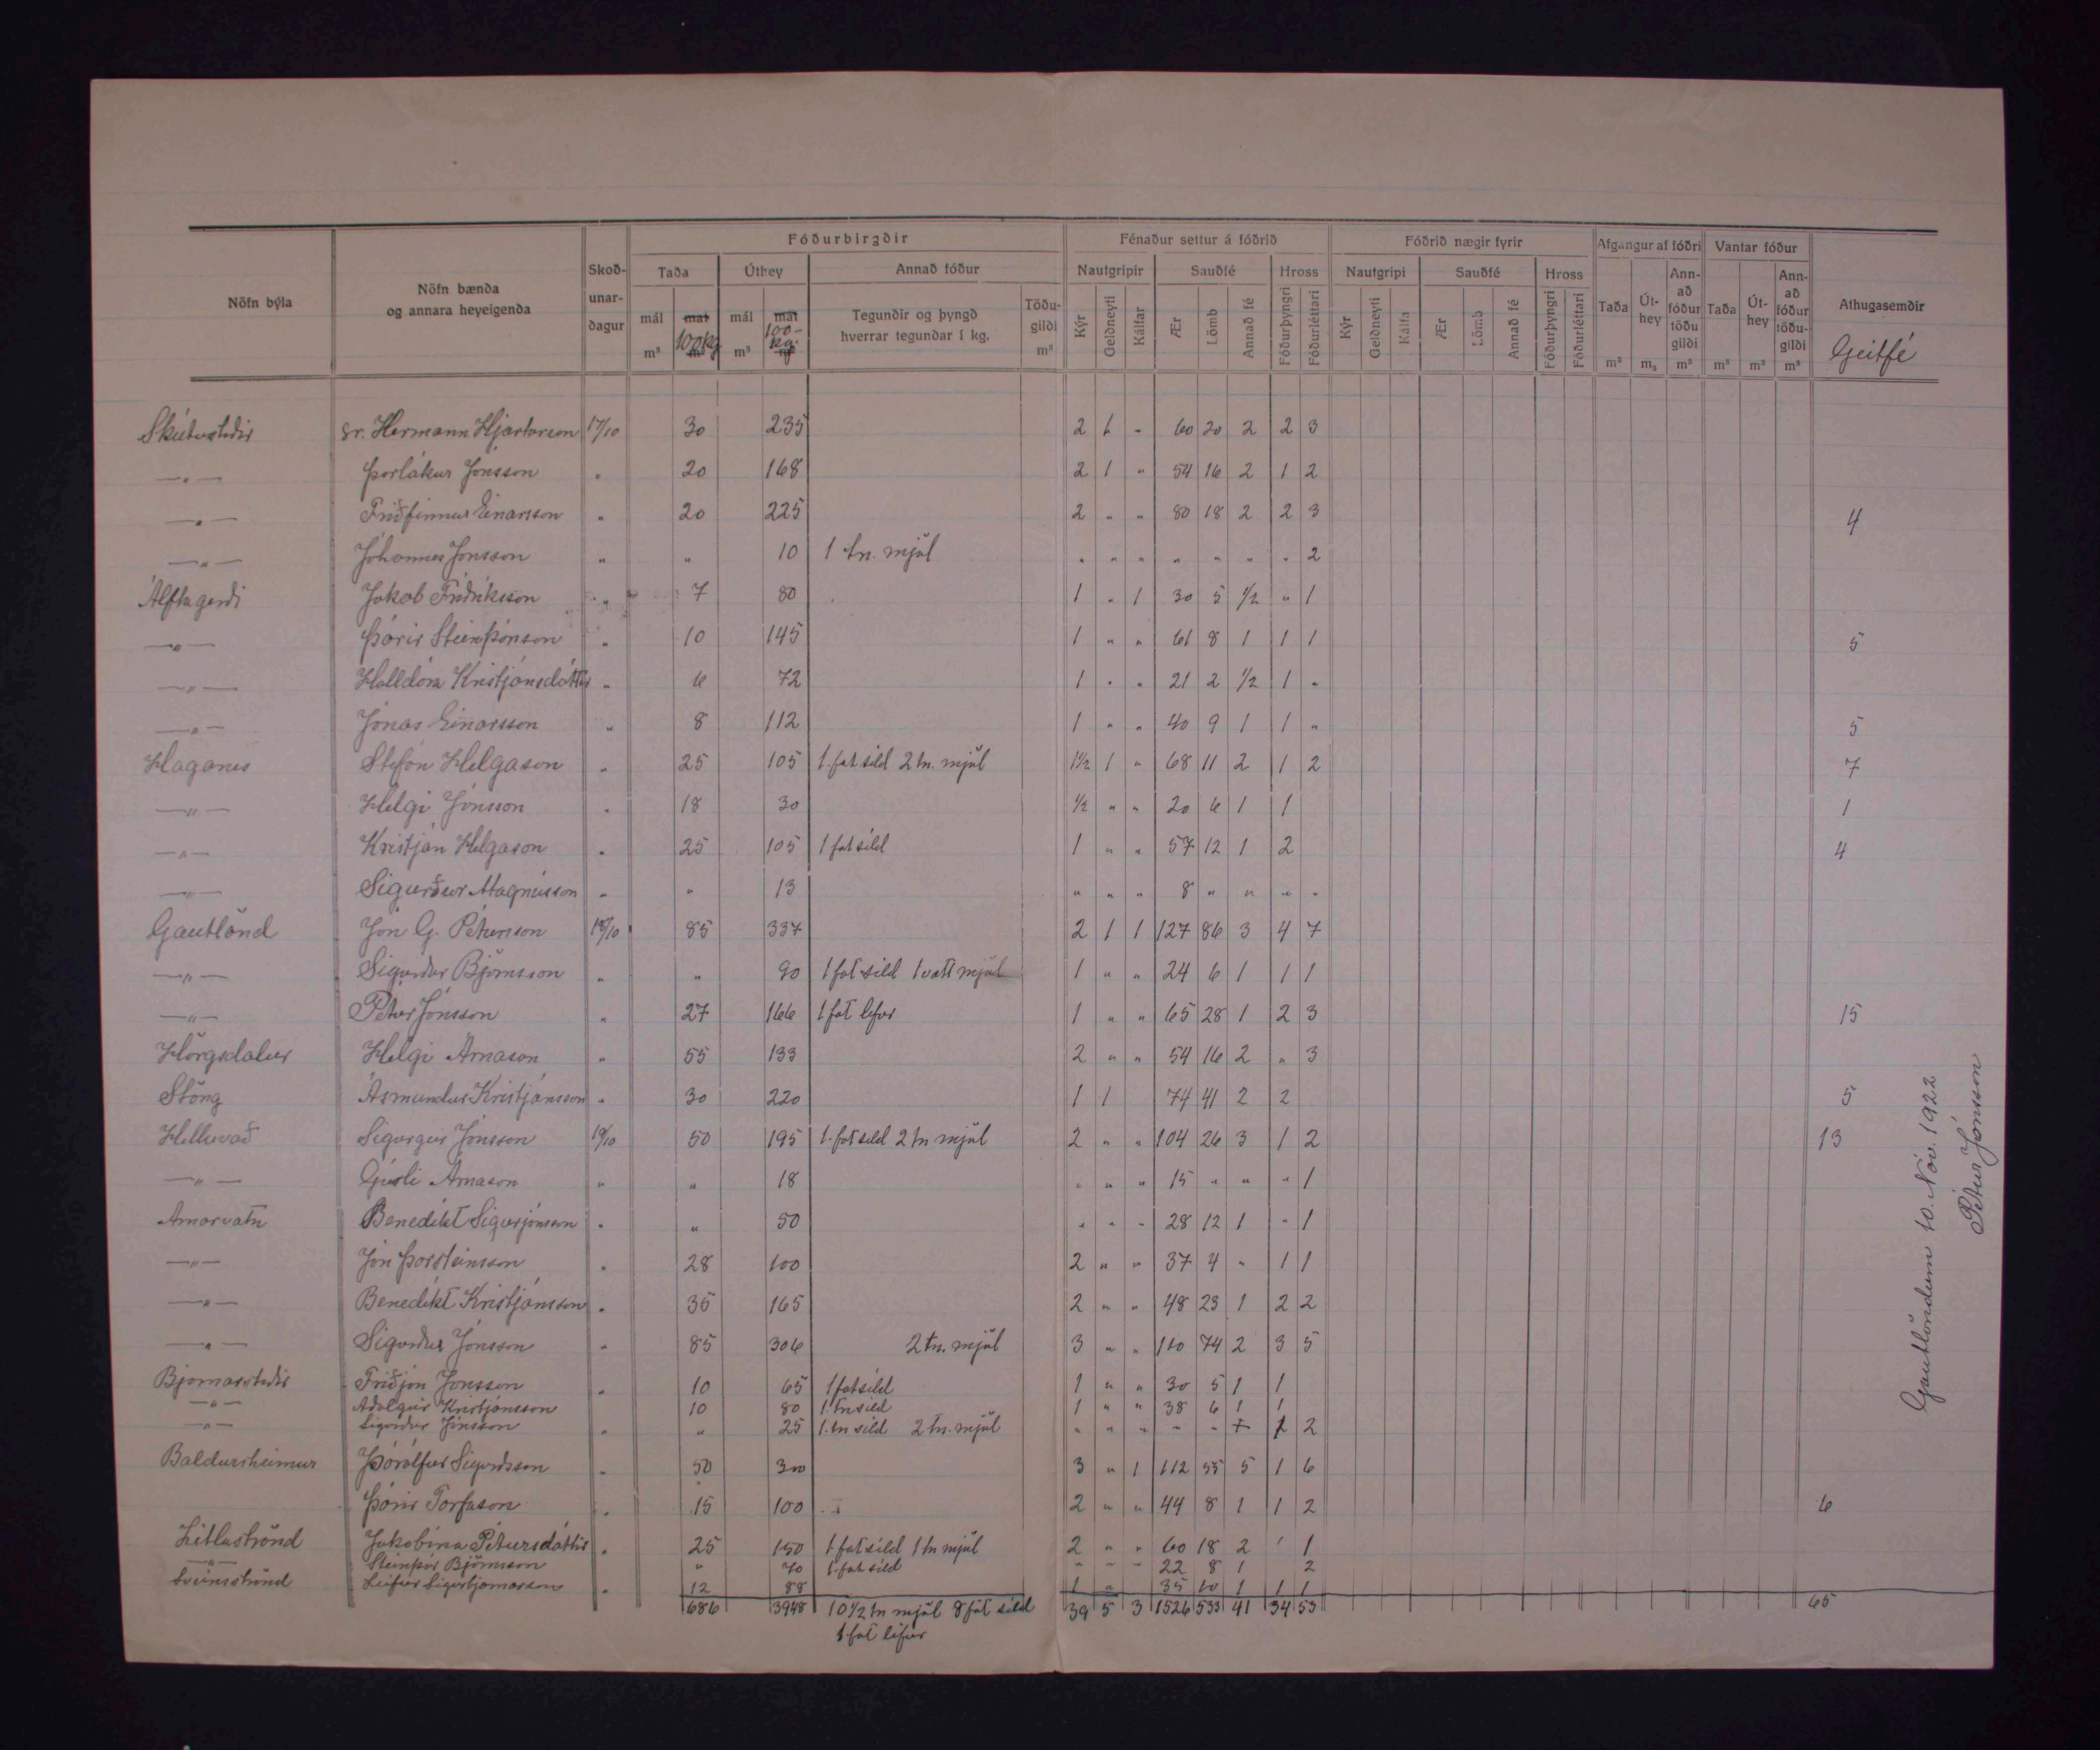 Fóðurbirgðir Fénaður settur á fóðrið Fóðrið nægir fyrir Afgangur af fóðri Vantar fóður
Nöfn býla Nöfn bænda og annara heyeigenda Skoð-unar-dagur Taða Úthey Annað fóður Nautgripir Sauðfé Hross Nautgripi Sauðfé Hross Athugasemdir
mál m³ mál 100 kg mál m³ mál 100 kg. Tegundir og þyngd hverrar tegundar í kg. Töðu-gildi m³ Kýr Geldneyti Kálfar Ær Lömb Annað fé Fóðurþyngri Fóðurléttari Kýr Geldneyti Kálfa Ær Lömb Annað fé Fóðurþyngri Fóðurléttari Taða m³ Út-hey m³ Ann-að fóður töðu gildi m³ Taða m³ Út-hey m³ Ann-að fóður töðu-gildi m³ Geitfé
Skútustaðir sr. Hermann Hjartarson 17/10 30 235 2 1 " 60 20 2 2 3
—"— Þorlákur Jónsson " 20 168 2 1 " 54 16 2 1 2
—"— Friðfinnur Einarsson " 20 225 2 " " 80 18 2 2 3 4
—"— Jóhannes Jónsson " " 10 1 tn. mjöl " " " " " " " 2
Álftagerði Jakob Friðriksson " 7 80 1 " 1 30 5 1/2 " 1
—"— Þórir Steinþórsson " 10 145 1 " " 61 8 1 1 1 5
—"— Halldóra Kristjánsdóttir " 6 72 1 " " 21 2 1/2 1 "
—"— Jónas Einarsson " 8 112 1 " " 40 9 1 1 " 5
Haganes Stefán Helgason " 25 105 1. fat síld 2 tn. mjöl 1 1/2 1 " 68 11 2 1 2 7
—"— Helgi Jónsson " 18 30 1/2 " " 20 6 1 1 1
—"— Kristján Helgason " 25 105 1 fat síld 1 " " 57 12 1 2 4
—"— Sigurður Magnússon " " 13 " " " 8 " " " "
Gautlönd Jón G. Pétursson 18/10 85 337 2 1 1 127 86 3 4 7
—"— Sigurður Björnsson " " 90 1 fat síld 1 vætt mjöl 1 " " 24 6 1 1 1
—"— Pétur Jónsson " 27 166 1 fat lifur 1 " " 65 28 1 2 3 15
Hörgsdalur Helgi Árnason " 55 133 2 " " 54 16 2 " 3
Stöng Ásmundur Kristjánsson " 30 220 1 1 74 41 2 2 5
Helluvað Sigurgeir Jónsson 19/10 50 195 1. fat síld 2 tn mjöl 2 " " 104 26 3 1 2 13
—"— Gísli Árnason " " 18 " " " 15 " " " 1
Arnarvatn Benedikt Sigurjónsson " " 50 " " " 28 12 1 " 1
—"— Jón Þorsteinsson " 28 100 2 " " 37 4 " 1 1
—"— Benedikt Kristjánsson " 35 165 2 " " 48 23 1 2 2
—"— Sigurður Jónsson " 85 306 2 tn. mjöl 3 " " 110 74 2 3 5
Bjarnastaðir Friðjón Jónsson " 10 65 1 fat síld 1 " " 30 5 1 1
—"— Aðalgeir Kristjánsson 10 80 1. tn síld 1 " " 38 6 1 1
—"— Sigurður Jónsson " " 25 1. tn síld 2 tn. mjöl " " " " " 1 2
Baldursheimur Þórólfur Sigurðsson " 50 300 3 " 1 112 55 5 1 6
Þórir Torfason " 15 100 2 " " 44 8 1 1 2 6
Litlaströnd Jakobína Pétursdóttir " 25 150 1 fat síld 1 tn mjöl 2 " " 60 18 2 1 1
—"— Steinþór Björnsson " 70 1. fat síld " " " 22 8 1 2
Sveinsströnd Leifur Sigurbjarnarson " 12 88 1 " 35 10 1 1 1
686 3948 10 1/2 tn mjöl 8 föt síld 39 5 3 1526 533 41 34 53 65
1 fat lifur
Gautlöndum 10. Nóv. 1922
Pétur Jónsson